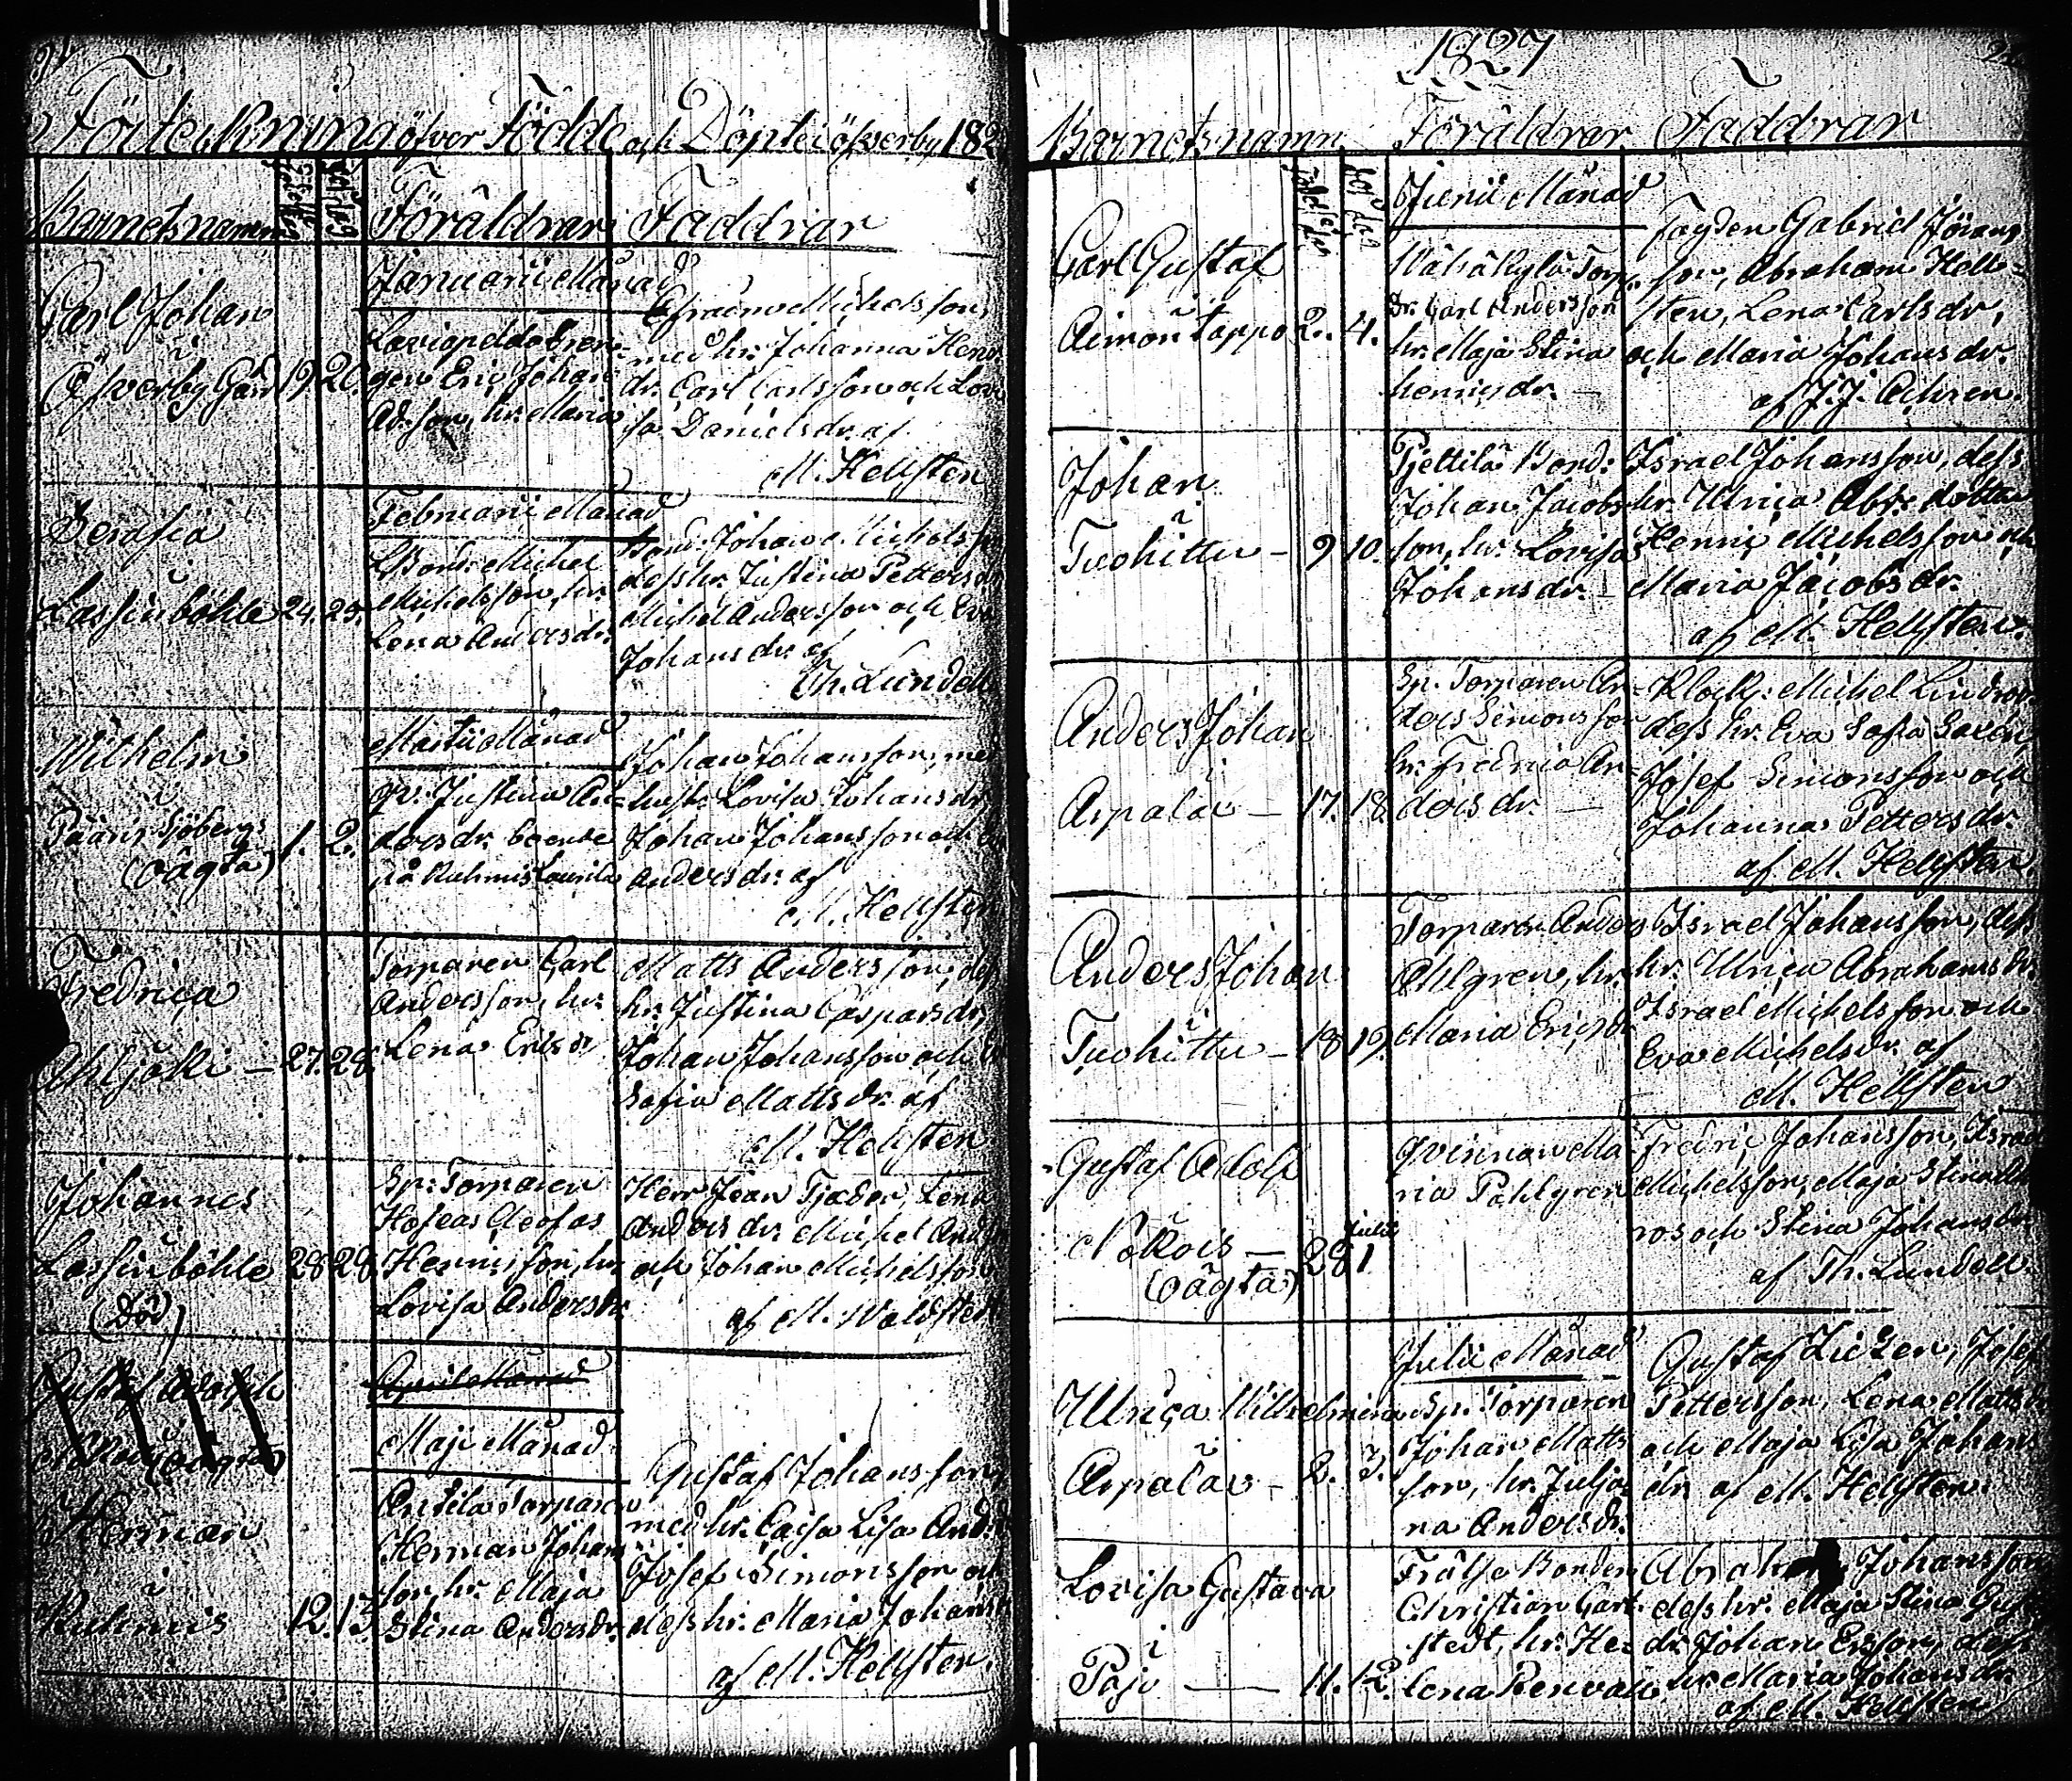 Förteckning öfver Födde och Döpte i öfverby 182
Barnets namn Föräldrar Faddrar
Januarii Månad
Carl Johan
Öfverby Gård 19. 20.
gen Eric Johan
Ad:son, hr. Maria
Efraim Michelsson,
med hr. Johanna Henr
dr. Carl Carlsson och Lovi
sa Danielsdr. af
M. Hellsten
Februarii Månad
Serafia
Lassinböhle 24. 25.
Bond: Michel
Michelsson, hr.
Lena Andersdr.
Bond: Johan Michelsson
dess hr. Justina Petters dr
Michel Andersson och Eva
Johansdr. af
Th. Lundell
Martii Månad
Wilhelm
Pääri Sjöbergs
(oägta) 1. 2.
qv: Justina An=
dersdr. boende
på Ruhmis Laurila
Johan Johansson, med
hustr. Lovisa Johansdr.
Johan Johansson och
Andersdr. af
M. Hellsten
Fredrica
Ahljoki — 27. 28.
Torparen Carl
Andersson, hr.
Lena Ericsdr
Matts Andersson, dess
hr. Justina Caspersdr,
Johan Johansson och
Sofia Mattsdr. af
M. Hellsten
Johannes
Lassinböhle 28 28.
(Död)
Sp: Torparen
Hoseas Cleofas
Henricsson, hr.
Lovisa Andersdr.
Herr Jean Tjäder, Lena
Andersdr. Michel And
och Johan Michelsson
af M. Waldstedt
April Månad
Gustaf Adolph
(oägta)
Maji Månad
Herman
Ruhmis 12. 13.
Antila Torparen
Herman Johans
son, hr. Maja
Stina Andersdr.
Gustaf Johansson,
med hr. Caisa Lisa And.
Josef Simonsson och
dess hr. Maria Johans
af M. Hellsten.
1827
Barnets namn Föräldrar Faddrar
Junii Månad
Carl Gustaf
Aimontappo 2. 4.
Wähäkylä Torp.
Dr. Carl Andersson
hr. Maja Stina
henricsdr. —
Fogden Gabriel Jörans
son, Abraham Hell=
sten, Lena Carlsdr,
och Maria Johansdr.
af J. J. Achren.
Johan
Tuohittu — 9 10.
Pjettilä Bond:
Johan Jacobs
son, hr. Lovisa
Johansdr. —
Israel Johansson, dess
hr. Ulrica Abr: dotter
Henric Michelsson och
Maria Jacobsdr.
af M. Hellsten.
Anders Johan
Arpalai — 17. 18.
Sp. Torparen An=
ders Simonsson
hr. Fredrica An=
dersdr. —
Klock: Michel Lindroos
dess hr. Eva Sofia Saxén,
Josef Simonsson och
Johanna Pettersdr.
af M. Hellsten.
Anders Johan
Tuohittu — 18 19.
Torparen Anders
Ahlgren, hr.
Maria Ericsdr
Israel Johansson, dess
hr. Ulrica Abrahamsdr.
Israel Michelsson och
Eva Michelsdr. af
M. Hellsten
Gustaf Adolf
Nokois — 28 Julii 1
(oägta)
Qvinnan Ma
ria Pahlgren
Fredric Johansson, Israel
Michelsson, Maja Stina
ros och Stina Johansdr
af Th. Lundell
Julii Månad
Ulrica Wilhelmina
Arpalai — 2. 3.
Sp. Torparen
Johan Matts
son, hr. Julja
na Andersdr.
Gustaf Lizen, Josef
Pettersson, Lena Mattsdr
och Maja Lisa Johans
dr. af M. Hellsten.
Lovisa Gustava
Pajo — 11. 12.
Frälse Bonden
Christian Carl
stedt, hr. He=
lena Renvall
Abraham Johansson
dess hr. Maja Stina Gust
dr. Johan Ersson, dess
hr. Maria Johansdr.
af M. Hellsten